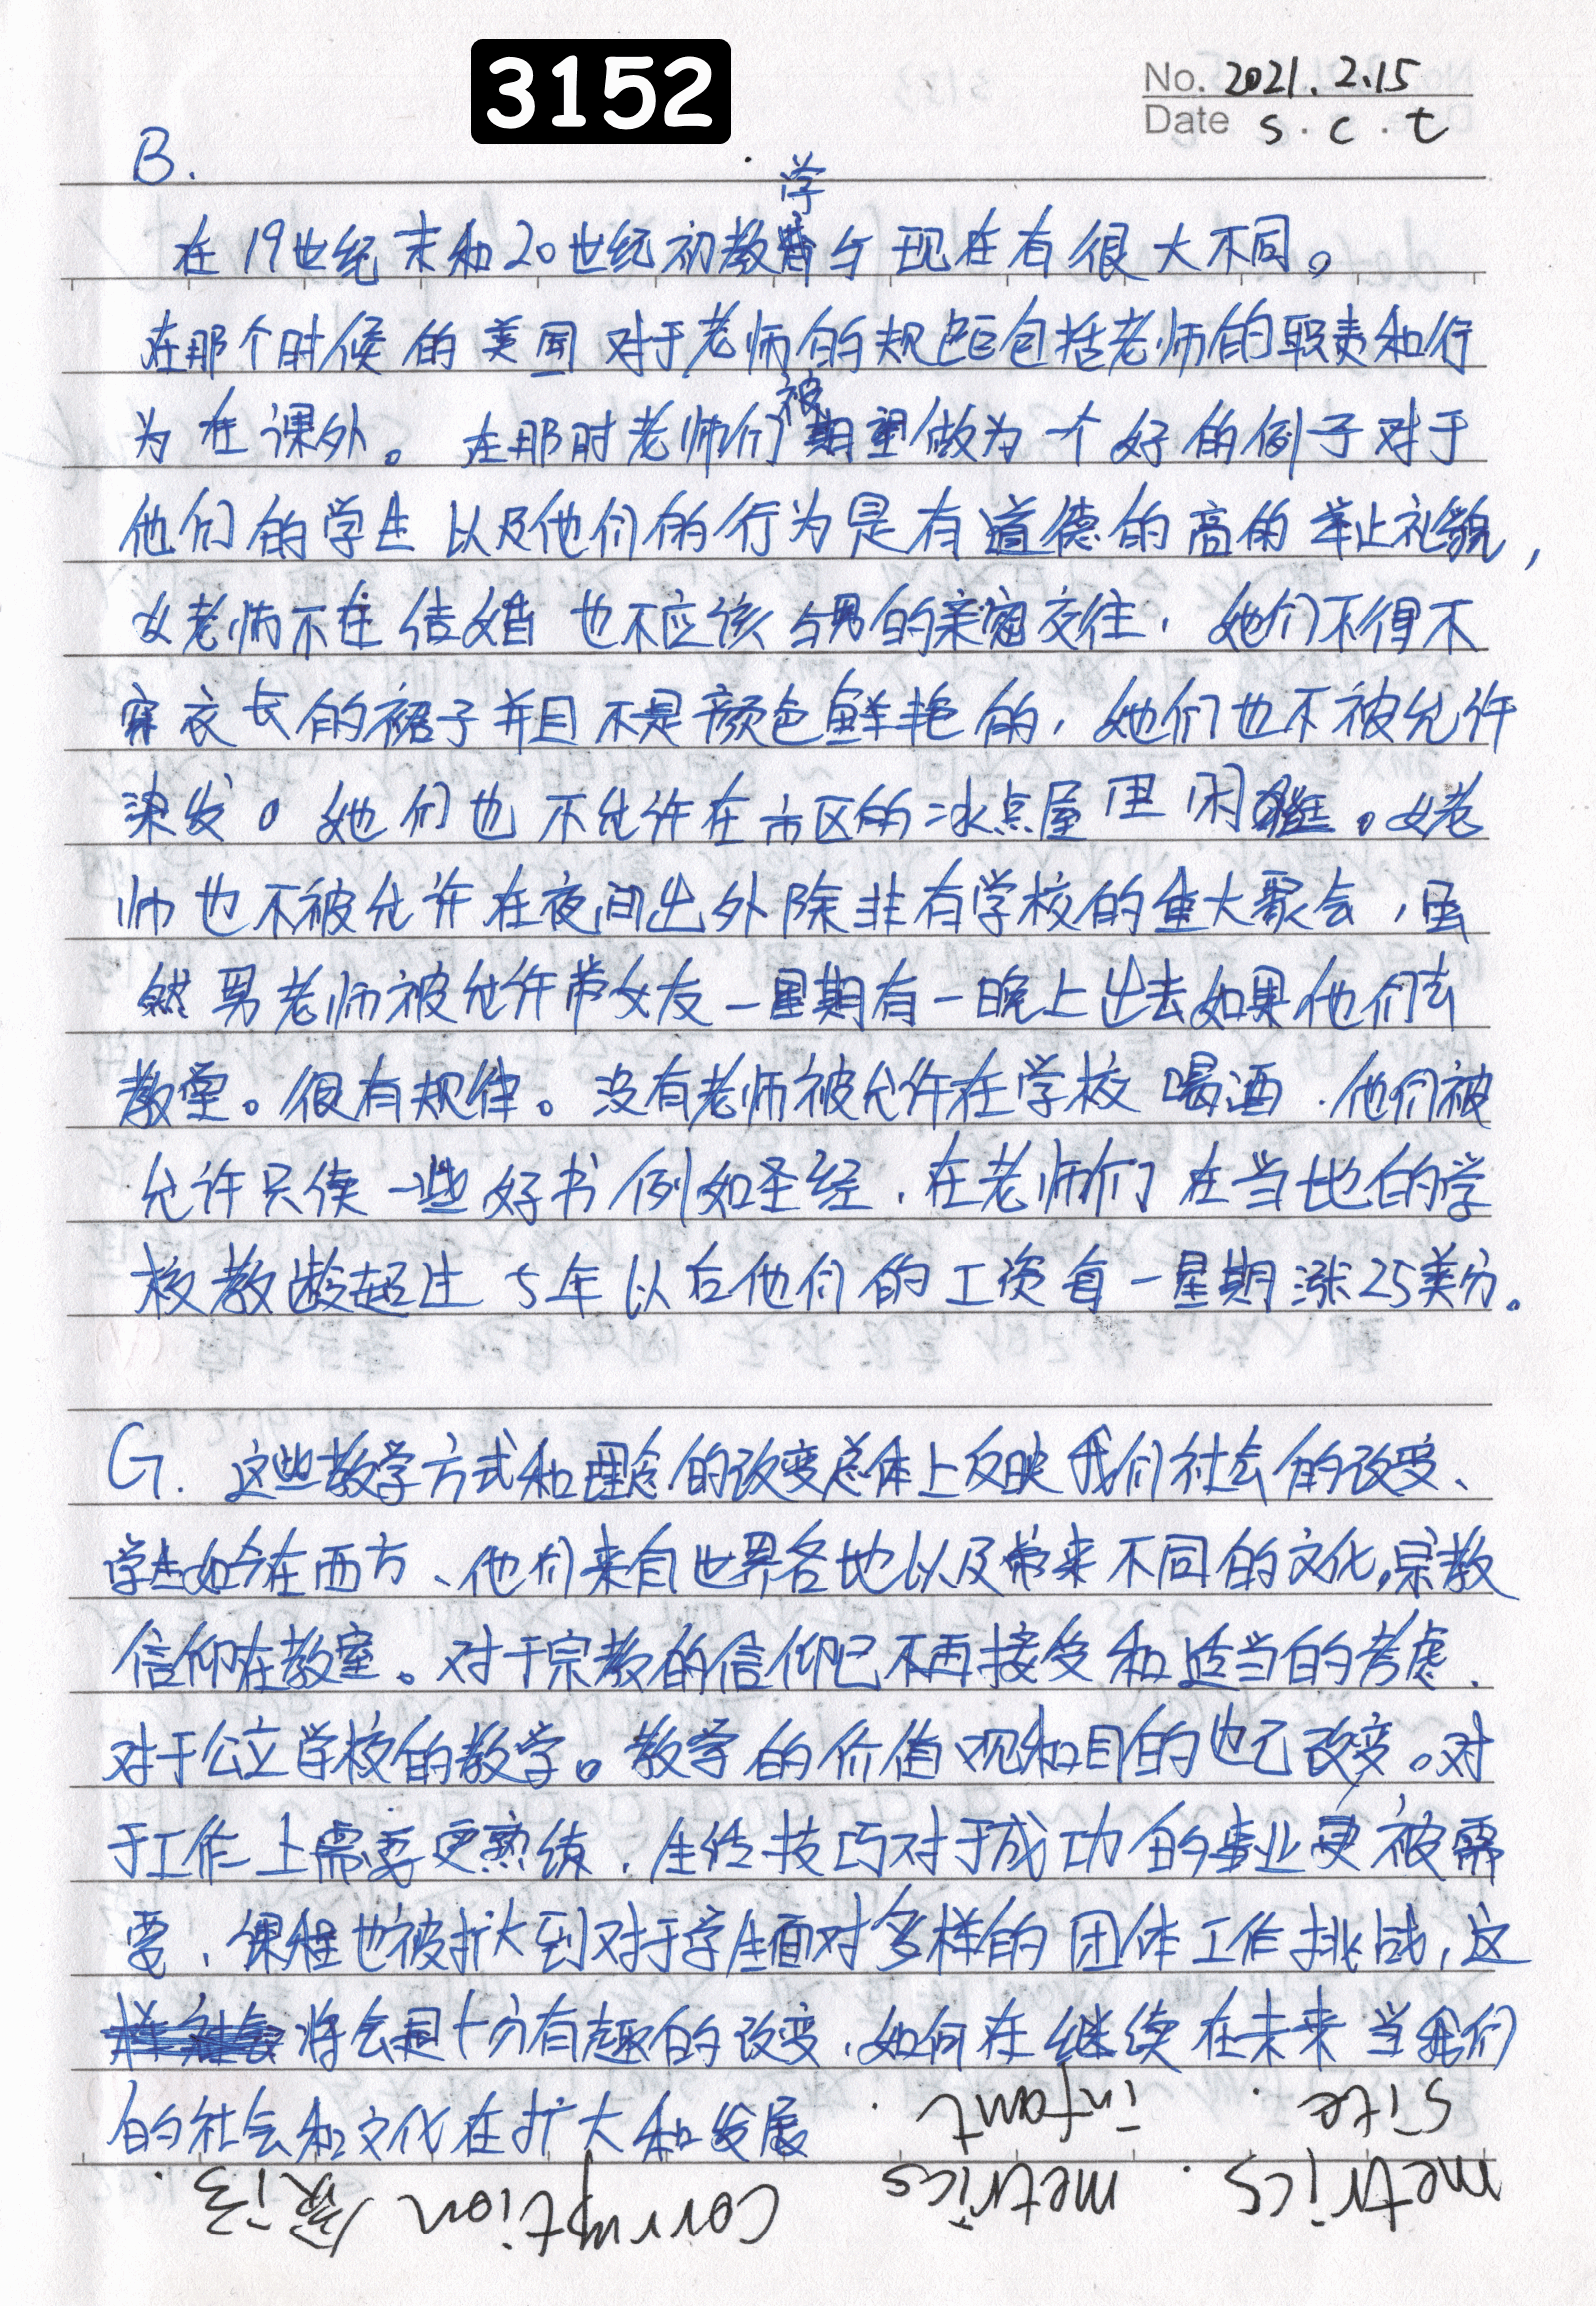 3152
No. 2021.2.15
Date s.c.t
B.
在19世纪末和20世纪初教学与现在有很大不同。
在那个时候的美国对于老师的规矩包括老师的职责和行
为在课外。在那时老师们被期望做为一个好的例子对于
他们的学生以及他们的行为是有道德的高的举止礼貌,
女老师不在结婚也不应该与男的亲密交往,她们不得不
穿衣长的裙子并且不是颜色鲜艳的,她们也不被允许
染发。她们也不允许在市区的冰点屋里闲逛。女老
师也不被允许在夜间出外除非有学校的重大聚会,虽
然男老师被允许带女友一星期有一晚上出去如果他们去
教堂。很有规律。没有老师被允许在学校喝酒.他们被
允许只读一些好书例如圣经.在老师们在当地的学
校教龄超过5年以后他们的工资有一星期涨25美分。
G.这些教学方式和理念的改变总体上反映我们社会的改变、
学生如今在西方、他们来自世界各地以及带来不同的文化,宗教
信仰在教室。对于宗教的信仰已不再接受和适当的考虑.
对于公立学校的教学。教学的价值观和目的也已改变。对
于工作上需要更熟练.生传技巧对于成功的事业更被需
要.课程也被扩大到对于学生面对多样的团体工作挑战,这
将会是十分有趣的改变.如何在继续在未来当我们
的社会和文化在扩大和发展
site. infant.
metrics. metrics corruption 腐污.